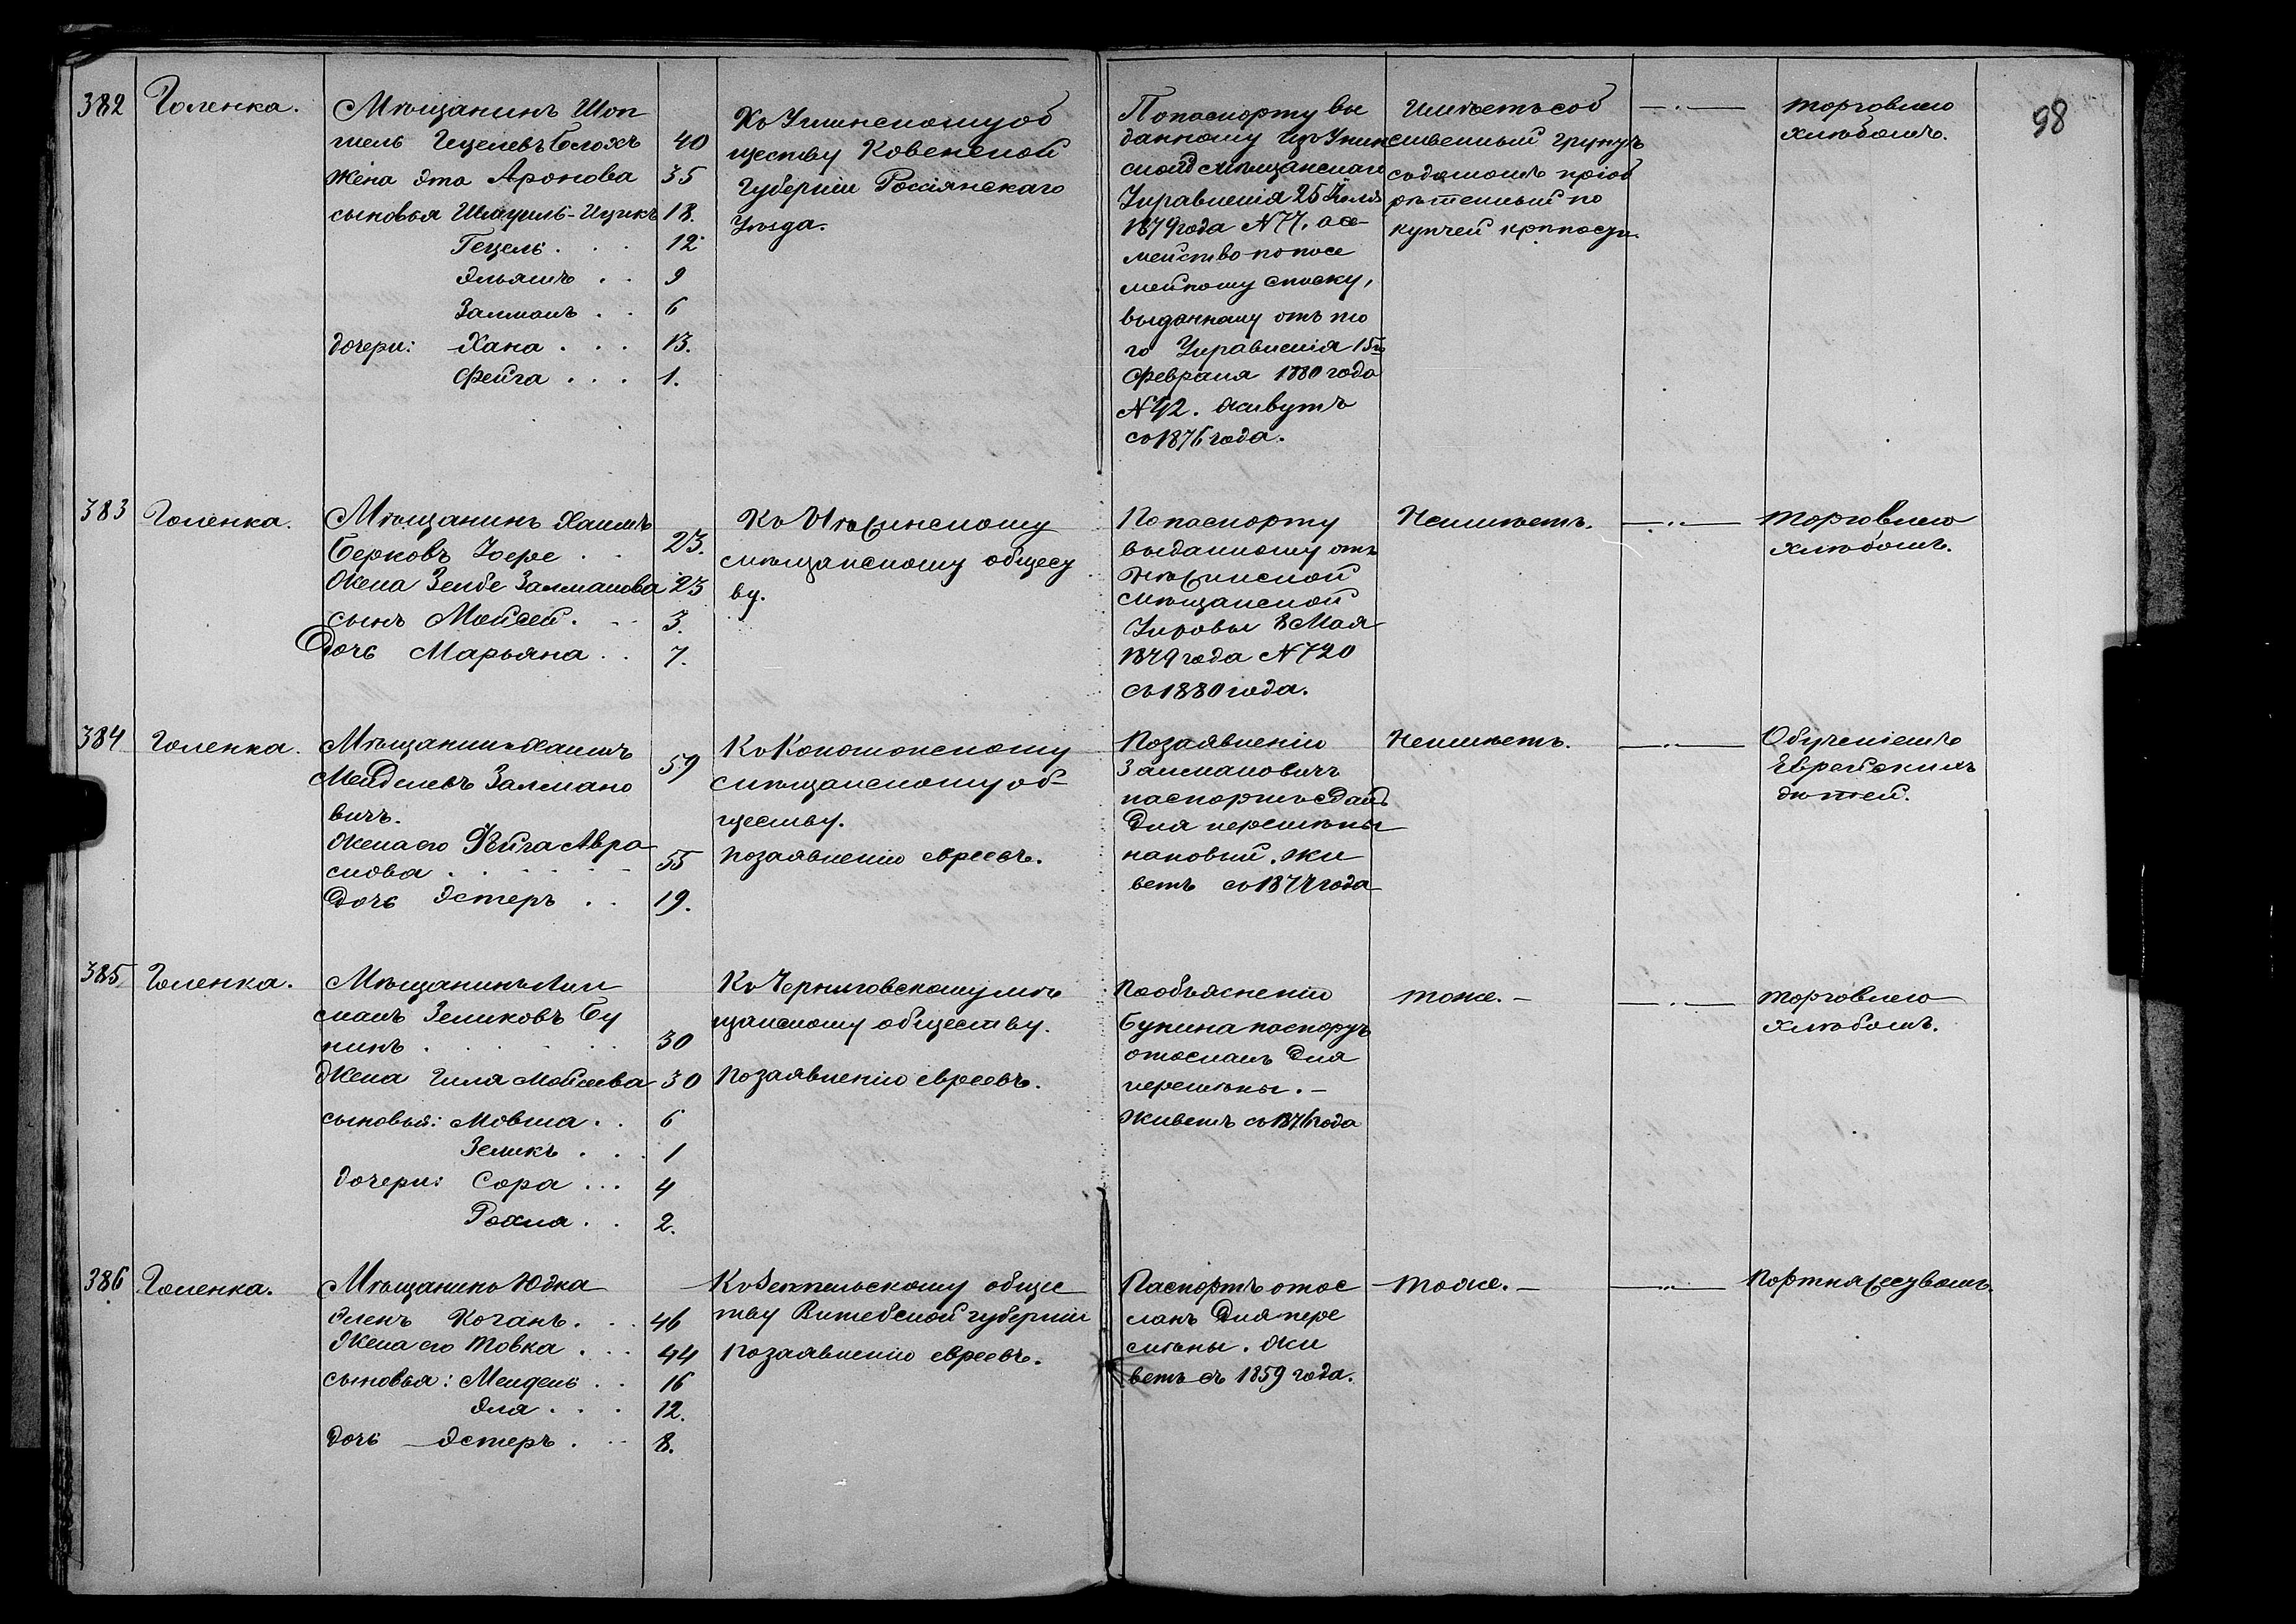 98
382
Голенка.
Мѣщанинъ Шоп
шель Гецелевъ Блохъ 40
Жена Эта Аронова 35
сыновья Шмуиль-Ицикъ 18.
Гецель . . . 12
Эльяшъ . . 9
Залманъ . . 6
дочери: Хана . . . 13.
Фейга . . . 1.
Къ обществу Ковенской
Губерніи Россіянскаго
Уѣзда.
По паспорту вы
данному изъ
мѣщанскаго
Управленія 25 Іюля
1879 года N 77, а се-
мейство по посе
мейному списку,
выданному отъ то
го Управленія 15го
Февраля 1880 года
N 42. живутъ
съ 1876 года.
Имѣетъ соб
ственный грунтъ
съ домомъ пріоб
рѣтенный по
купчей крѣпости.
—.—
торговлею
хлѣбомъ.
383
Голенка.
Мѣщанинъ Хаимъ
Берковъ . . 23.
Жена Зельде Залманова 23
сынъ Мойсей. . . 3.
Дочь Марьяна . . 7.
Къ Нѣжинскому
мѣщанскому общест
ву.
По паспорту
выданному отъ
Нѣжинской
мѣщанской
Управы 8 Мая
1879 года N 720
съ 1880 года.
Неимѣетъ.
—..—
торговлею
хлѣбомъ.
384
Голенка.
Мѣщанинъ Хаимъ
Менделевъ Залмано
вичъ. 59
Жена его Фейга Абра
мова . . . . . 55
Дочь Эстеръ . . 19.
Къ Конотопскому
мѣщанскому об-
ществу.
по заявленію евреевъ.
По заявленію
Залмановича
паспортъ сданъ
для перемѣны
на новый. жи
ветъ съ 1877 года
Неимѣетъ.
—..—
Обученіемъ
Еврейскихъ
дѣтей.
385
Голенка.
Мѣщанинъ Лип
манъ Зеликовъ Бу
нинъ . . . . . 30
Жена Гиля Мойсеева 30
сыновья: Мовша . . 6
Зеликъ . . . 1
дочери: Сора . . . 4
Рохля . . 2.
Къ Черниговскому мѣ
щанскому обществу.
по заявленію евреевъ.
По объясненію
Бунина паспортъ
отосланъ для
перемѣны. —
Живетъ съ 1876 года
тоже. —
—..—
торговлею
хлѣбомъ.
386
Голенка.
Мѣщанинъ Юдка
Коганъ. . . 46
Жена его Товка . . . 44
сыновья: Мендель . . 16
Эля . . . 12.
дочь Эстеръ . . . 8.
Къ Лепельскому общес
тву Витебской губерніи
по заявленію евреевъ.
Паспортъ отос
ланъ для пере
мѣны. жи
ветъ съ 1859 года.
тоже. —
—..—
Портняжествомъ.